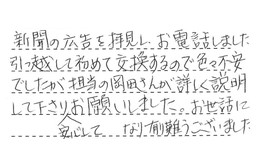 新聞の広告を拝見し、お電話しました
引っ越して初めて交換するので色々不安
でしたが担当の岡田さんが詳しく説明
して下さりお願いしました。お世話に
安心して なり有難うございました